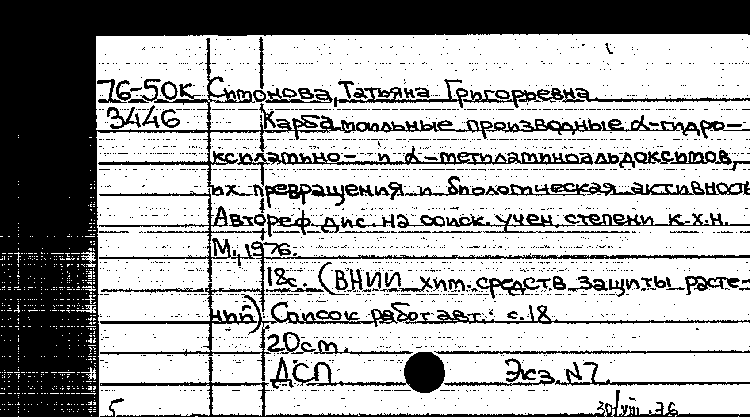 76-50к Симонова, Татьяна Григорьевна
3446 Карбамоильные производные α-гидро-
ксиламино- и α-метиламиноальдоксимов,
их превращения и биологическая активность
Автореф. дис. на соиск. учен. степени к.х.н.
М., 1976.
18с. (ВНИИ хим. средств защиты расте-
ний) Список работ авт.: с.18
20см.
ДСП. Экз. N7.
5 30/VIII.76